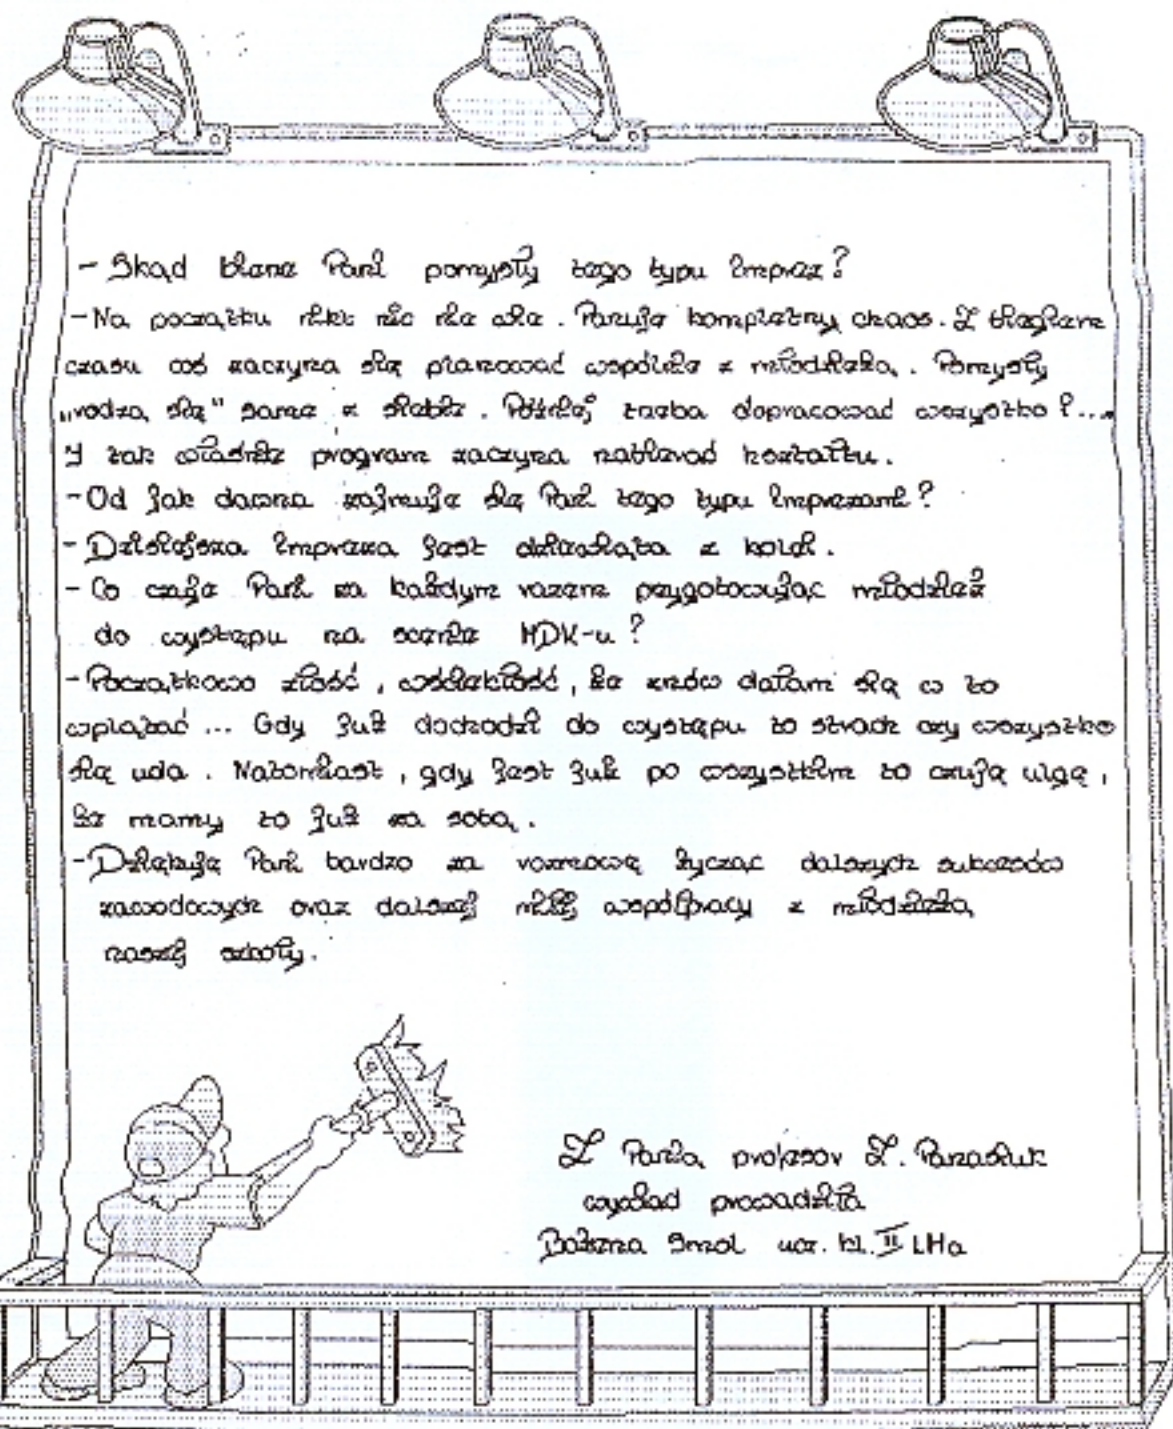 - Skąd bierze Pani pomysły tego typu imprez?
- Na początku nikt nic nie wie. Panuje kompletny chaos. Z biegiem
czasu coś zaczyna się planować wspólnie z młodzieżą. Pomysły
"rodzą się" same z siebie. Później trzeba dopracować wszystko i....
I tak właśnie program zaczyna nabierać kształtu.
- Od jak dawna zajmuje się Pani tego typu imprezami?
- Dzisiejsza impreza jest dziewiąta z kolei.
- Co czuje Pani za każdym razem przygotowując młodzież
do występu na scenie MDK-u?
- Początkowo złość, wściekłość, że znów dałam się w to
wplątać ... Gdy już dochodzi do występu to strach czy wszystko
się uda. Natomiast, gdy jest już po wszystkim to czuję ulgę,
że mamy to już za sobą.
- Dziękuję Pani bardzo za rozmowę życząc dalszych sukcesów
zawodowych oraz dalszej miłej współpracy z młodzieżą
naszej szkoły.
Z Panią profesor Z. Panasiuk
wywiad prowadziła
Bożena Smol ucz. kl. II LHa